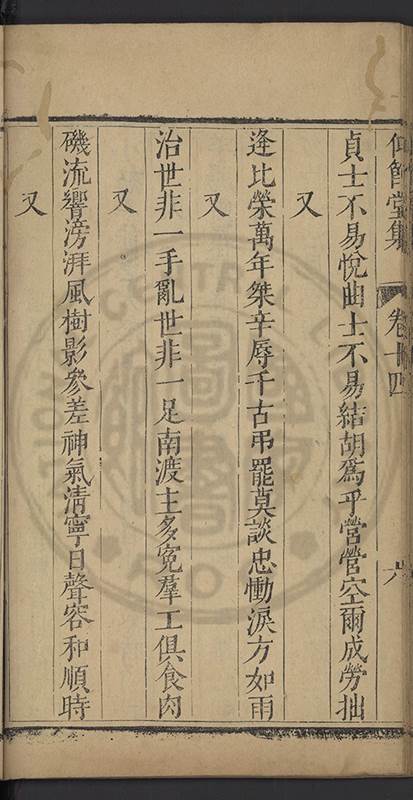 仰節堂集 卷十四 八
貞士不易悅曲士不易結胡爲乎營營空爾成勞拙
又
逄比榮萬年桀辛辱千古弔罷莫談忠慟淚方如雨
又
治世非一手亂世非一足南渡主多冤羣工俱食肉
又
磯流響滂湃風樹影參差神氣清寧日聲容和順時
又